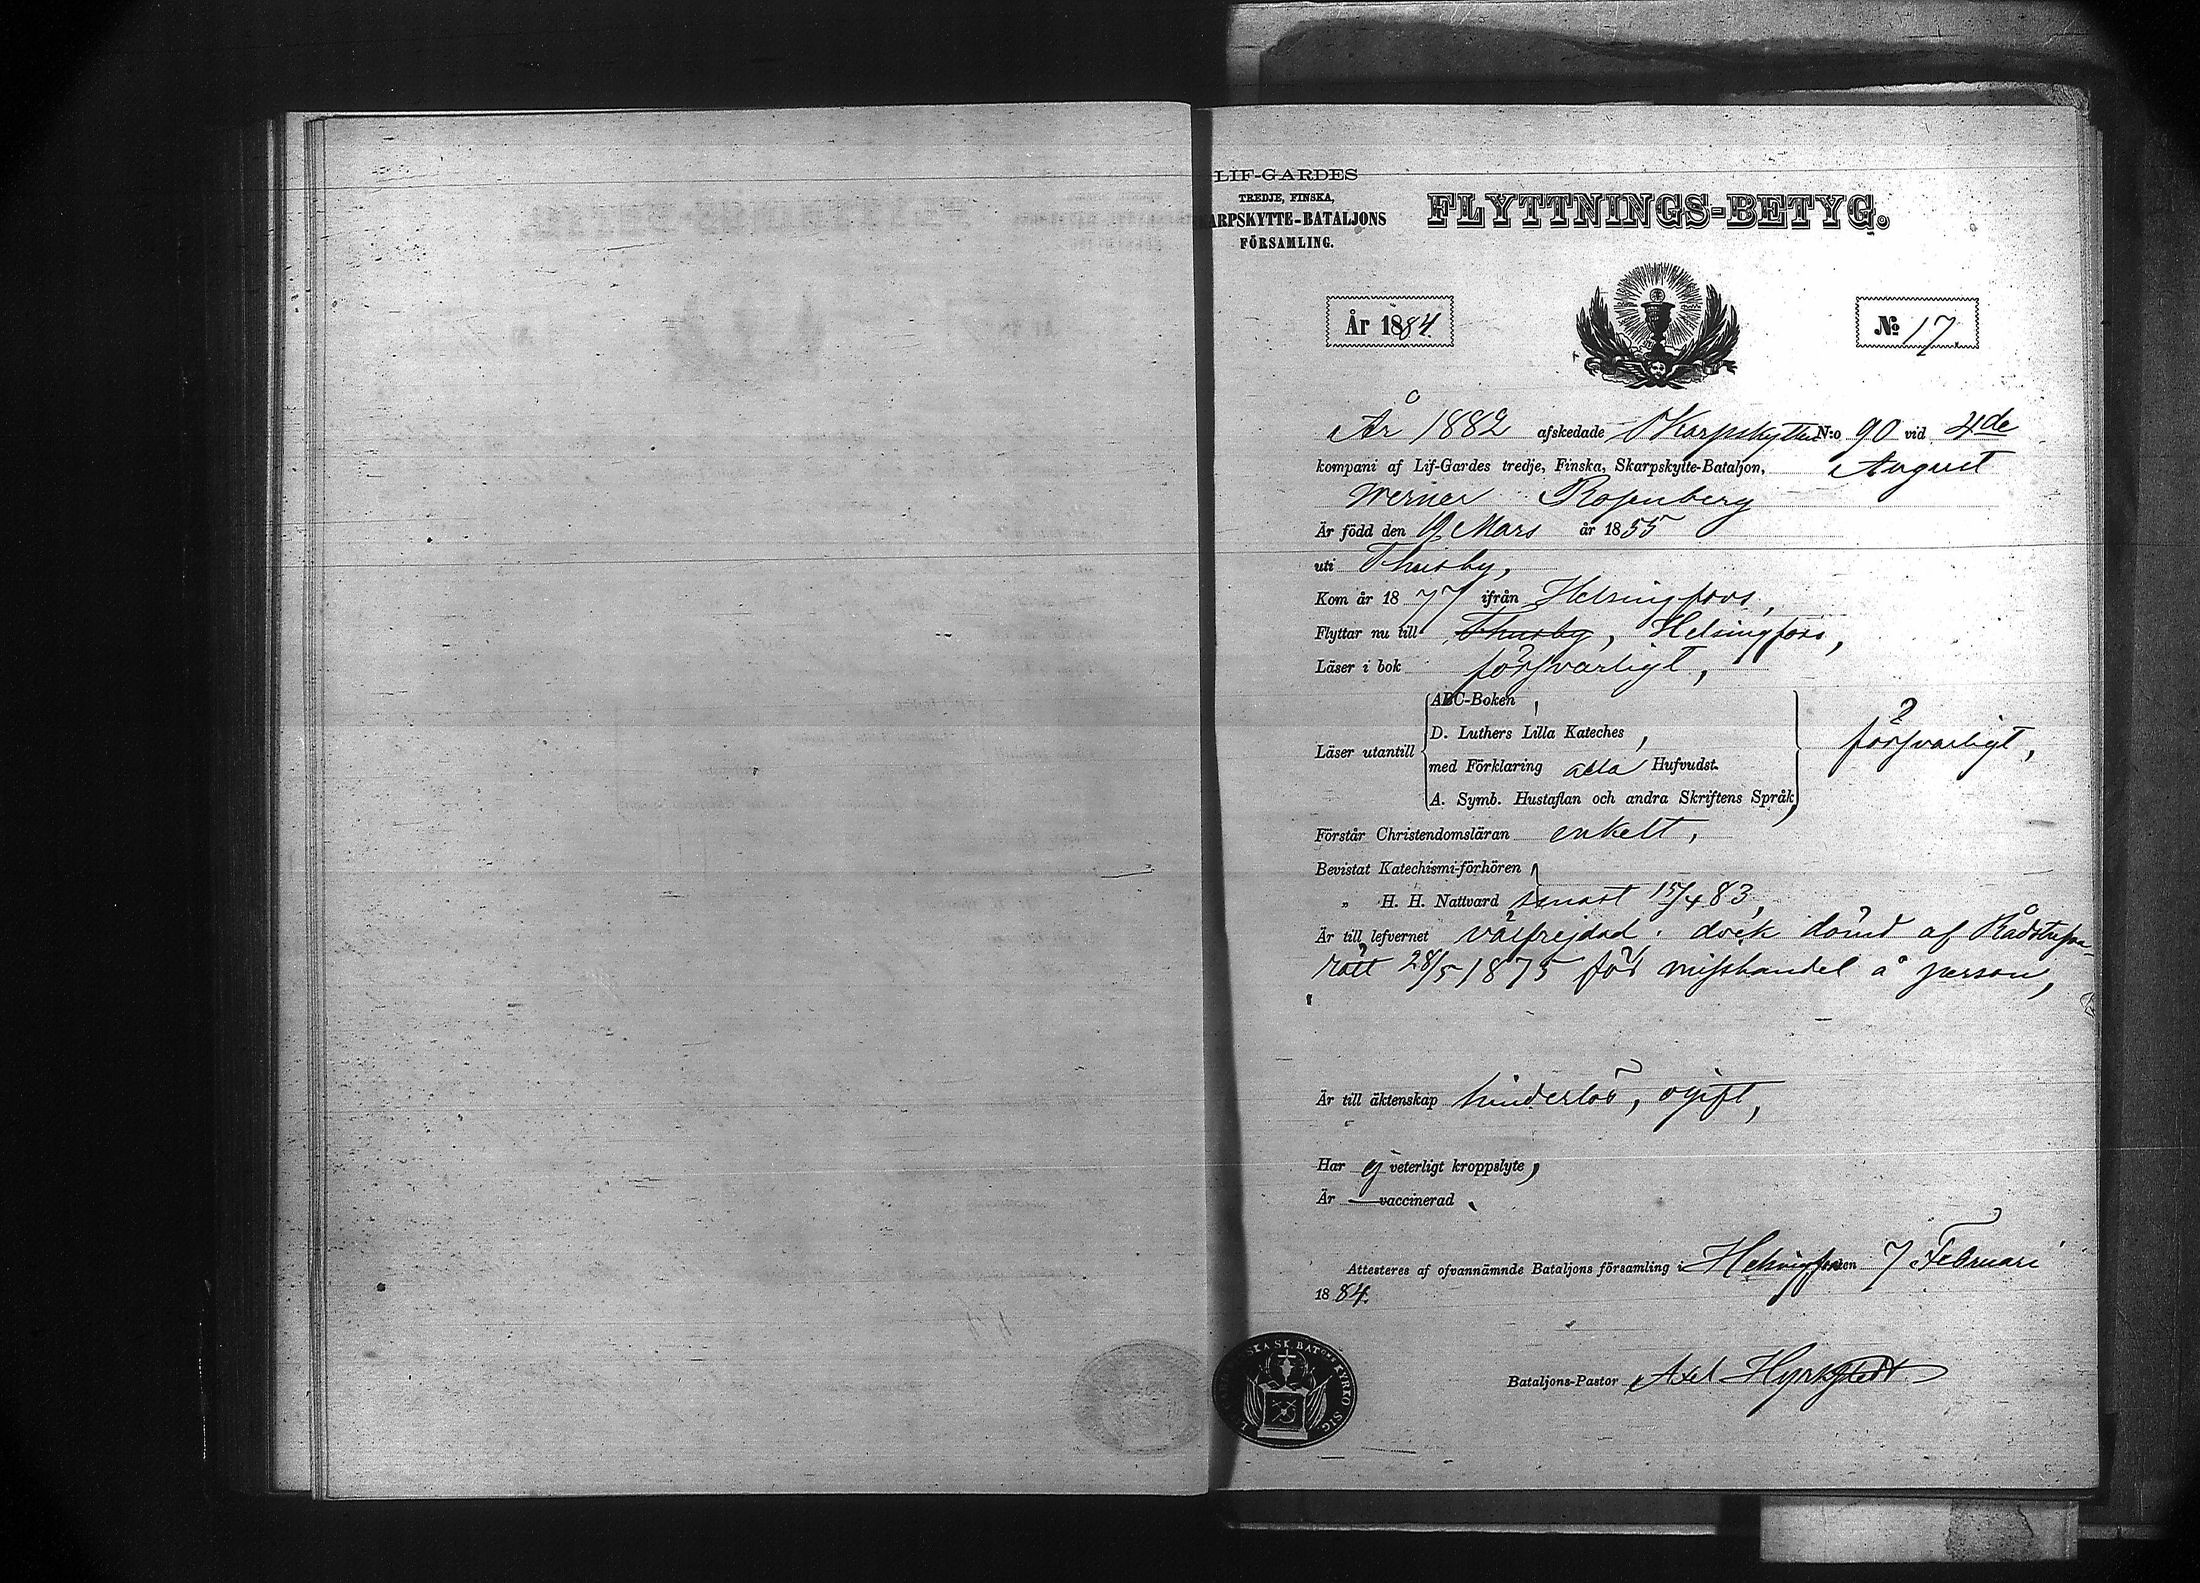 LIF-GARDES
TREDJE, FINSKA,
KARPSKYTTE-BATALJONS
FÖRSAMLING.
FLYTTNINGS-BETYG.
År 1884
№ 17.
År 1882 afskedade Skarpskytten N:o 90 vid 4de
kompani af Lif-Gardes tredje, Finska, Skarpskytte-Bataljon, August
Werner Rosenberg
Är född den 19 Mars år 1855
uti Thusby,
Kom år 1877 ifrån Helsingfors,
Flyttar nu till Thusby, Helsingfors,
Läser i bok försvarligt,
Läser utantill
ABC-Boken,
D. Luthers Lilla Kateches,
med Förklaring alla Hufvudst.
A. Symb. Hustaflan och andra Skriftens Språk,
försvarligt,
Förstår Christendomsläran enkelt,
Bevistat Katechismi-förhören
„ H. H. Nattvard senast 15/4 83,
Är till lefvernet välfrejdad. dock dömd af Rådstufvu-
rätt 28/5 1875 för misshandel å person,
Är till äktenskap hinderlös, ogift,
Har ej veterligt kroppslyte,
Är — vaccinerad.
Attesteres af ofvannämnde Bataljons församling i Helsingfors den 7 Februari
1884.
Bataljons-Pastor Axel Hyrkstedt
SKA SK. BAT:ONS KYRKO SIG.